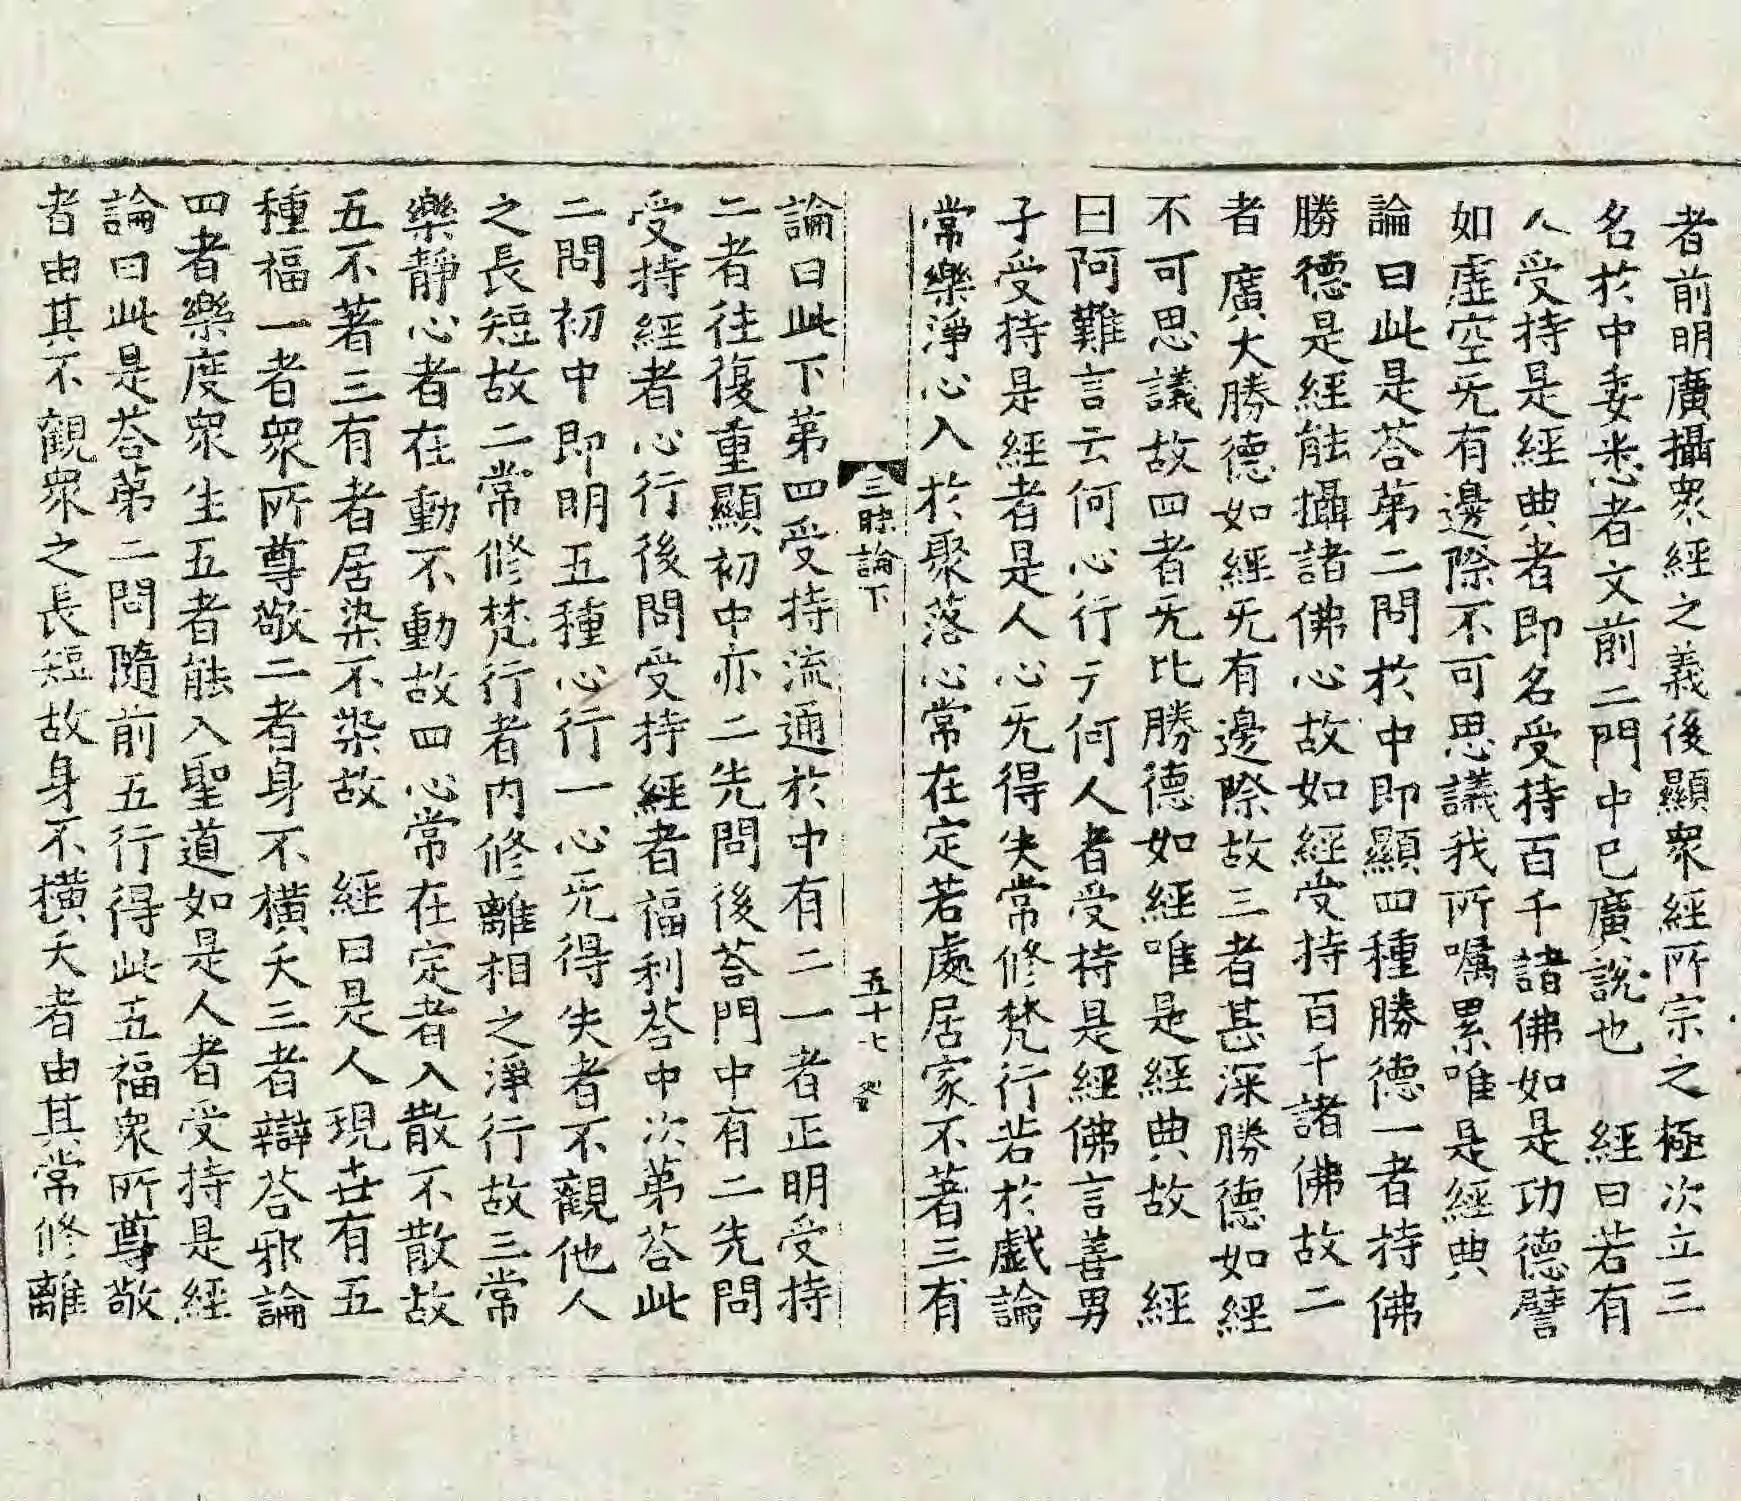 者前明廣攝衆經之義後顯衆經所宗之極次立三
名於中委悉者文前二門中已廣說也　經曰若有
人受持是經典者即名受持百千諸佛如是功德譬
如虛空无有邊際不可思議我所囑累唯是經典
論曰此是荅第二問於中即顯四種勝德一者持佛
勝德是經能攝諸佛心故如經受持百千諸佛故二
者廣大勝德如經无有邊際故三者甚深勝德如經
不可思議故四者无比勝德如經唯是經典故　經
曰阿難言云何心行云何人者受持是經佛言善男
子受持是經者是人心无得失常修梵行若於戱論
常樂淨心入於聚落心常在定若處居家不著三有
三昧論下　五十七
論曰此下第四受持流通於中有二一者正明受持
二者往復重顯初中亦二先問後荅門中有二先問
受持經者心行後問受持經者福利荅中次第荅此
二問初中即明五種心行一心无得失者不觀他人
之長短故二常修梵行者內修離相之淨行故三常
樂靜心者在動不動故四心常在定者入散不散故
五不著三有者居染不染故　經曰是人現世有五
種福一者衆所尊敬二者身不橫夭三者辯荅邪論
四者樂度衆生五者能入聖道如是人者受持是經
論曰此是荅第二問隨前五行得此五福衆所尊敬
者由其不觀衆之長短故身不橫夭者由其常修離